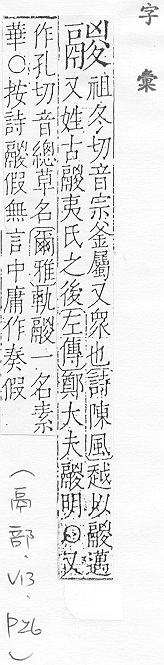 字彙
鬷 祖冬切音宗釜屬又衆也詩陳風越以鬷邁
又姓古鬷夷氏之後左傳鄭大夫鬷明〇又
作孔切音總草名爾雅軌鬷一名素
華〇按詩鬷假無言中庸作奏假
(鬲部.V13.P26)